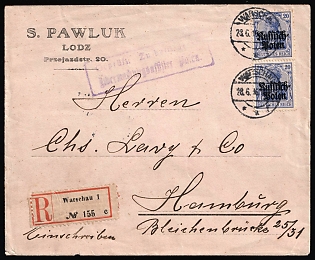 S. PAWLUK
LODZ
Przejazdstr. 20.
WARSCHAU
28.6.16
20
Russisch-
Polen
20
Russisch-
Polen
28.6.16
Herren
Chs. Lavy & Co
Hamburg
Bleichenbrücke 25/31
R
Warschau 1
№ 156 c
Einschreiben